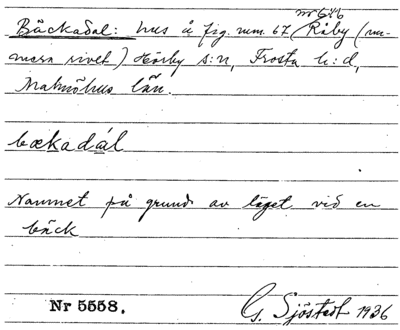 nr 646
Bäckadal: hus å fig. num. 67 Råby (nu-
mera rivet) Hörby s:n, Frosta h:d,
Malmöhus län.
bækadál
Namnet på grund av läget vid en
bäck
Nr 5558.
G. Sjöstedt 1936